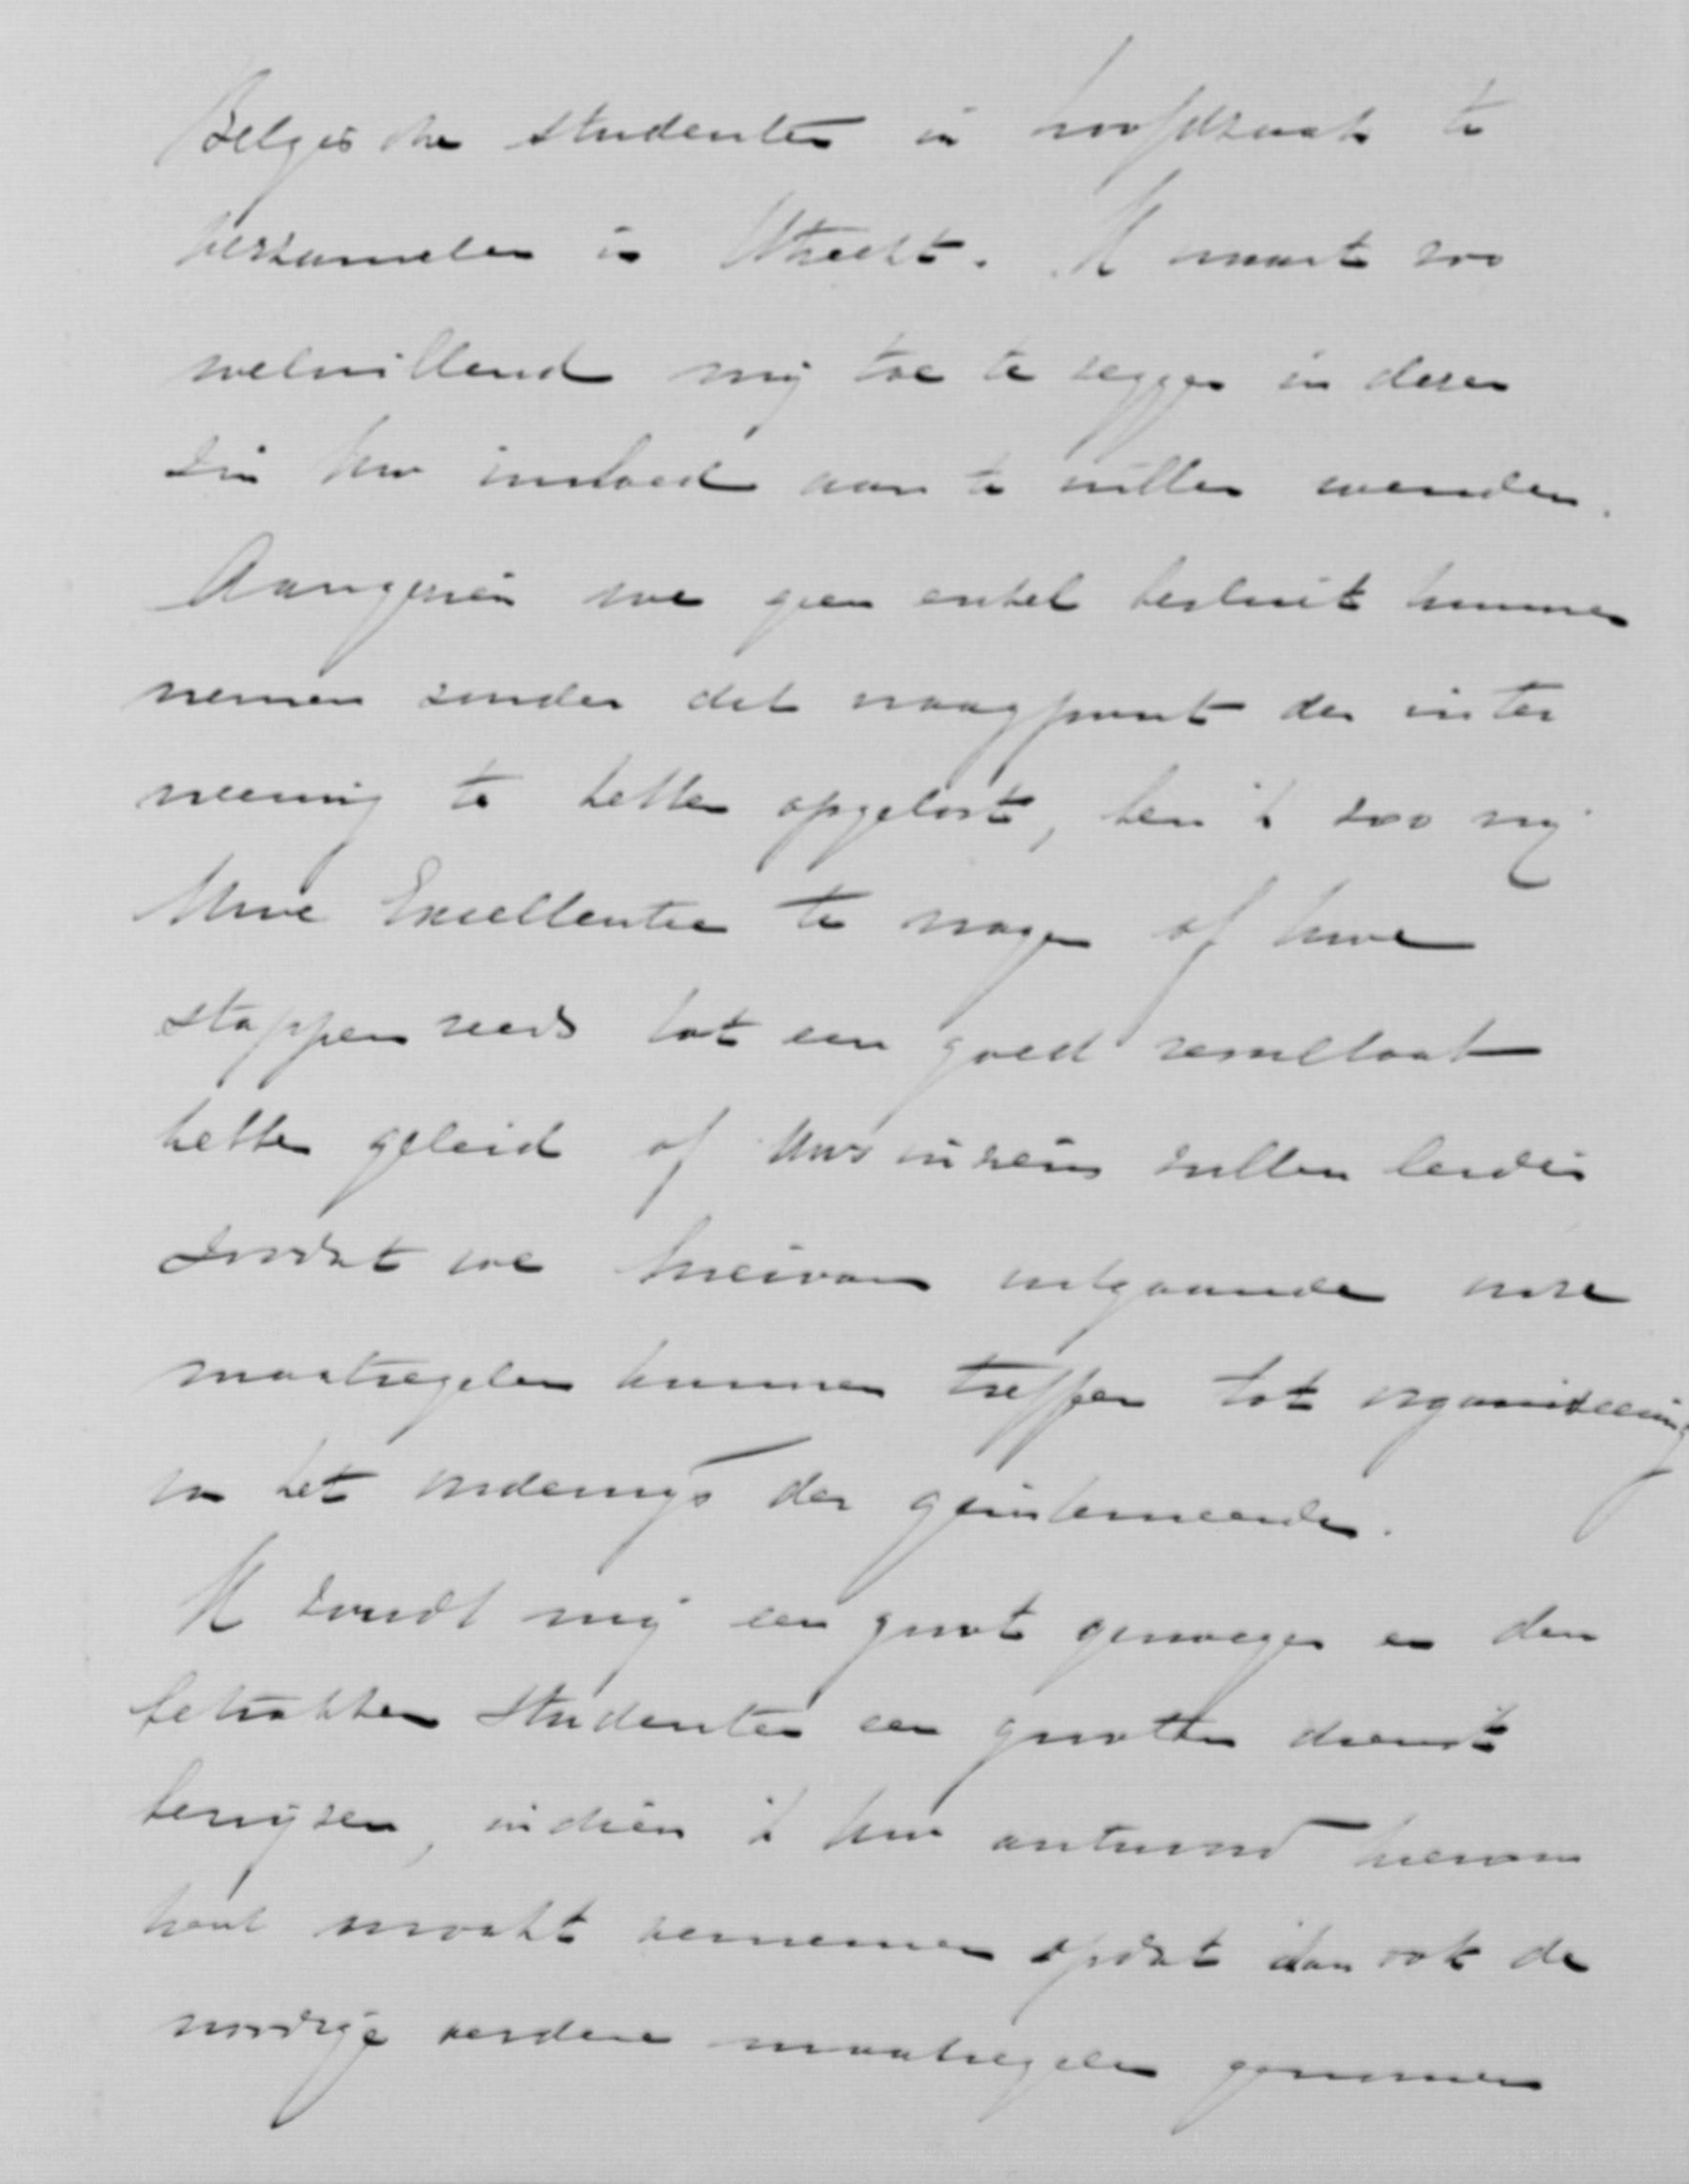 Belgische studenten in hoofdzaak te
verzamelen in Utrecht. U waart zoo
welwillend mij toe te zeggen in dezen
zin Uw invloed aan te willen wenden.
Aangezien we geen enkel besluit kunnen
nemen zonder dit vraagpunt der inter
neering te hebben opgelost, ben ik zoo vrij
Uwe Excellentie te vragen of Uwe
stappen reeds tot een goed resultaat
hebben geleid of Uws inziens zullen leiden
zoodat we hiervan uitgaande onze
maatregelen kunnen treffen tot organiseering
van het onderwijs der geinterneerden.
U zoudt mij een groot genoegen en den
betrokken studenten een grooten dienst
bewijzen, indien ik Uw antwoord hierom
mocht vernemen opdat dan ook de
noodige verdere maatregelen genomen